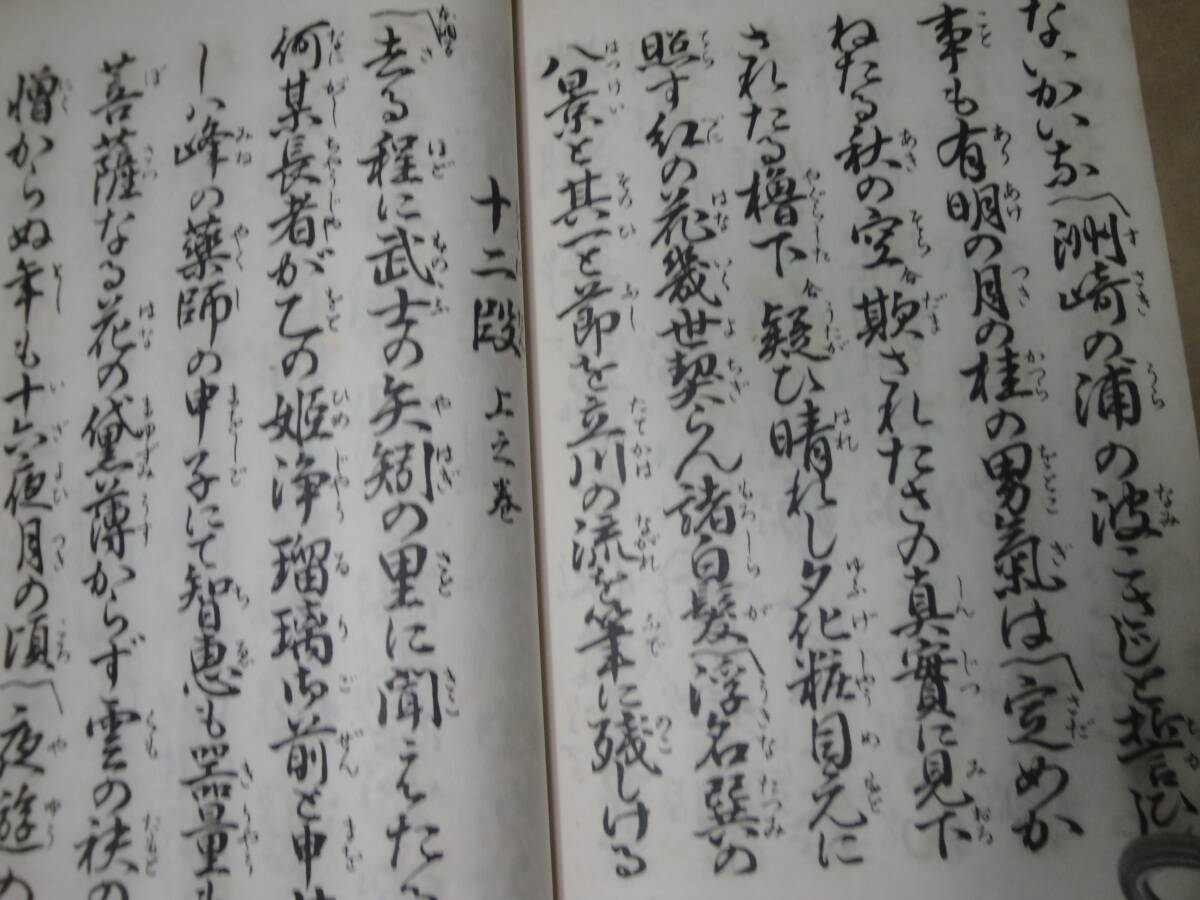 ないかいな 洲崎の浦の波こさじと誓ひし
事も有明の月の桂の男氣は 定めか
ねたる秋の空 欺されたさの真實に見下
されたる櫓下 疑ひ晴れし夕化粧目元に
照す紅の花幾世契らん諸白髪 浮名巽の
八景と其一と節を立川の流を筆に残しける
十二段 上之巻
去る程に武士の矢矧の里に聞えたる
何某長者が乙の姫浄瑠璃御前と申せ
しハ峰の藥師の申子にて智恵も器量も
菩薩なる花の黛薄からず雲の袂の
憎からぬ年も十六夜月の頃 夜遊の